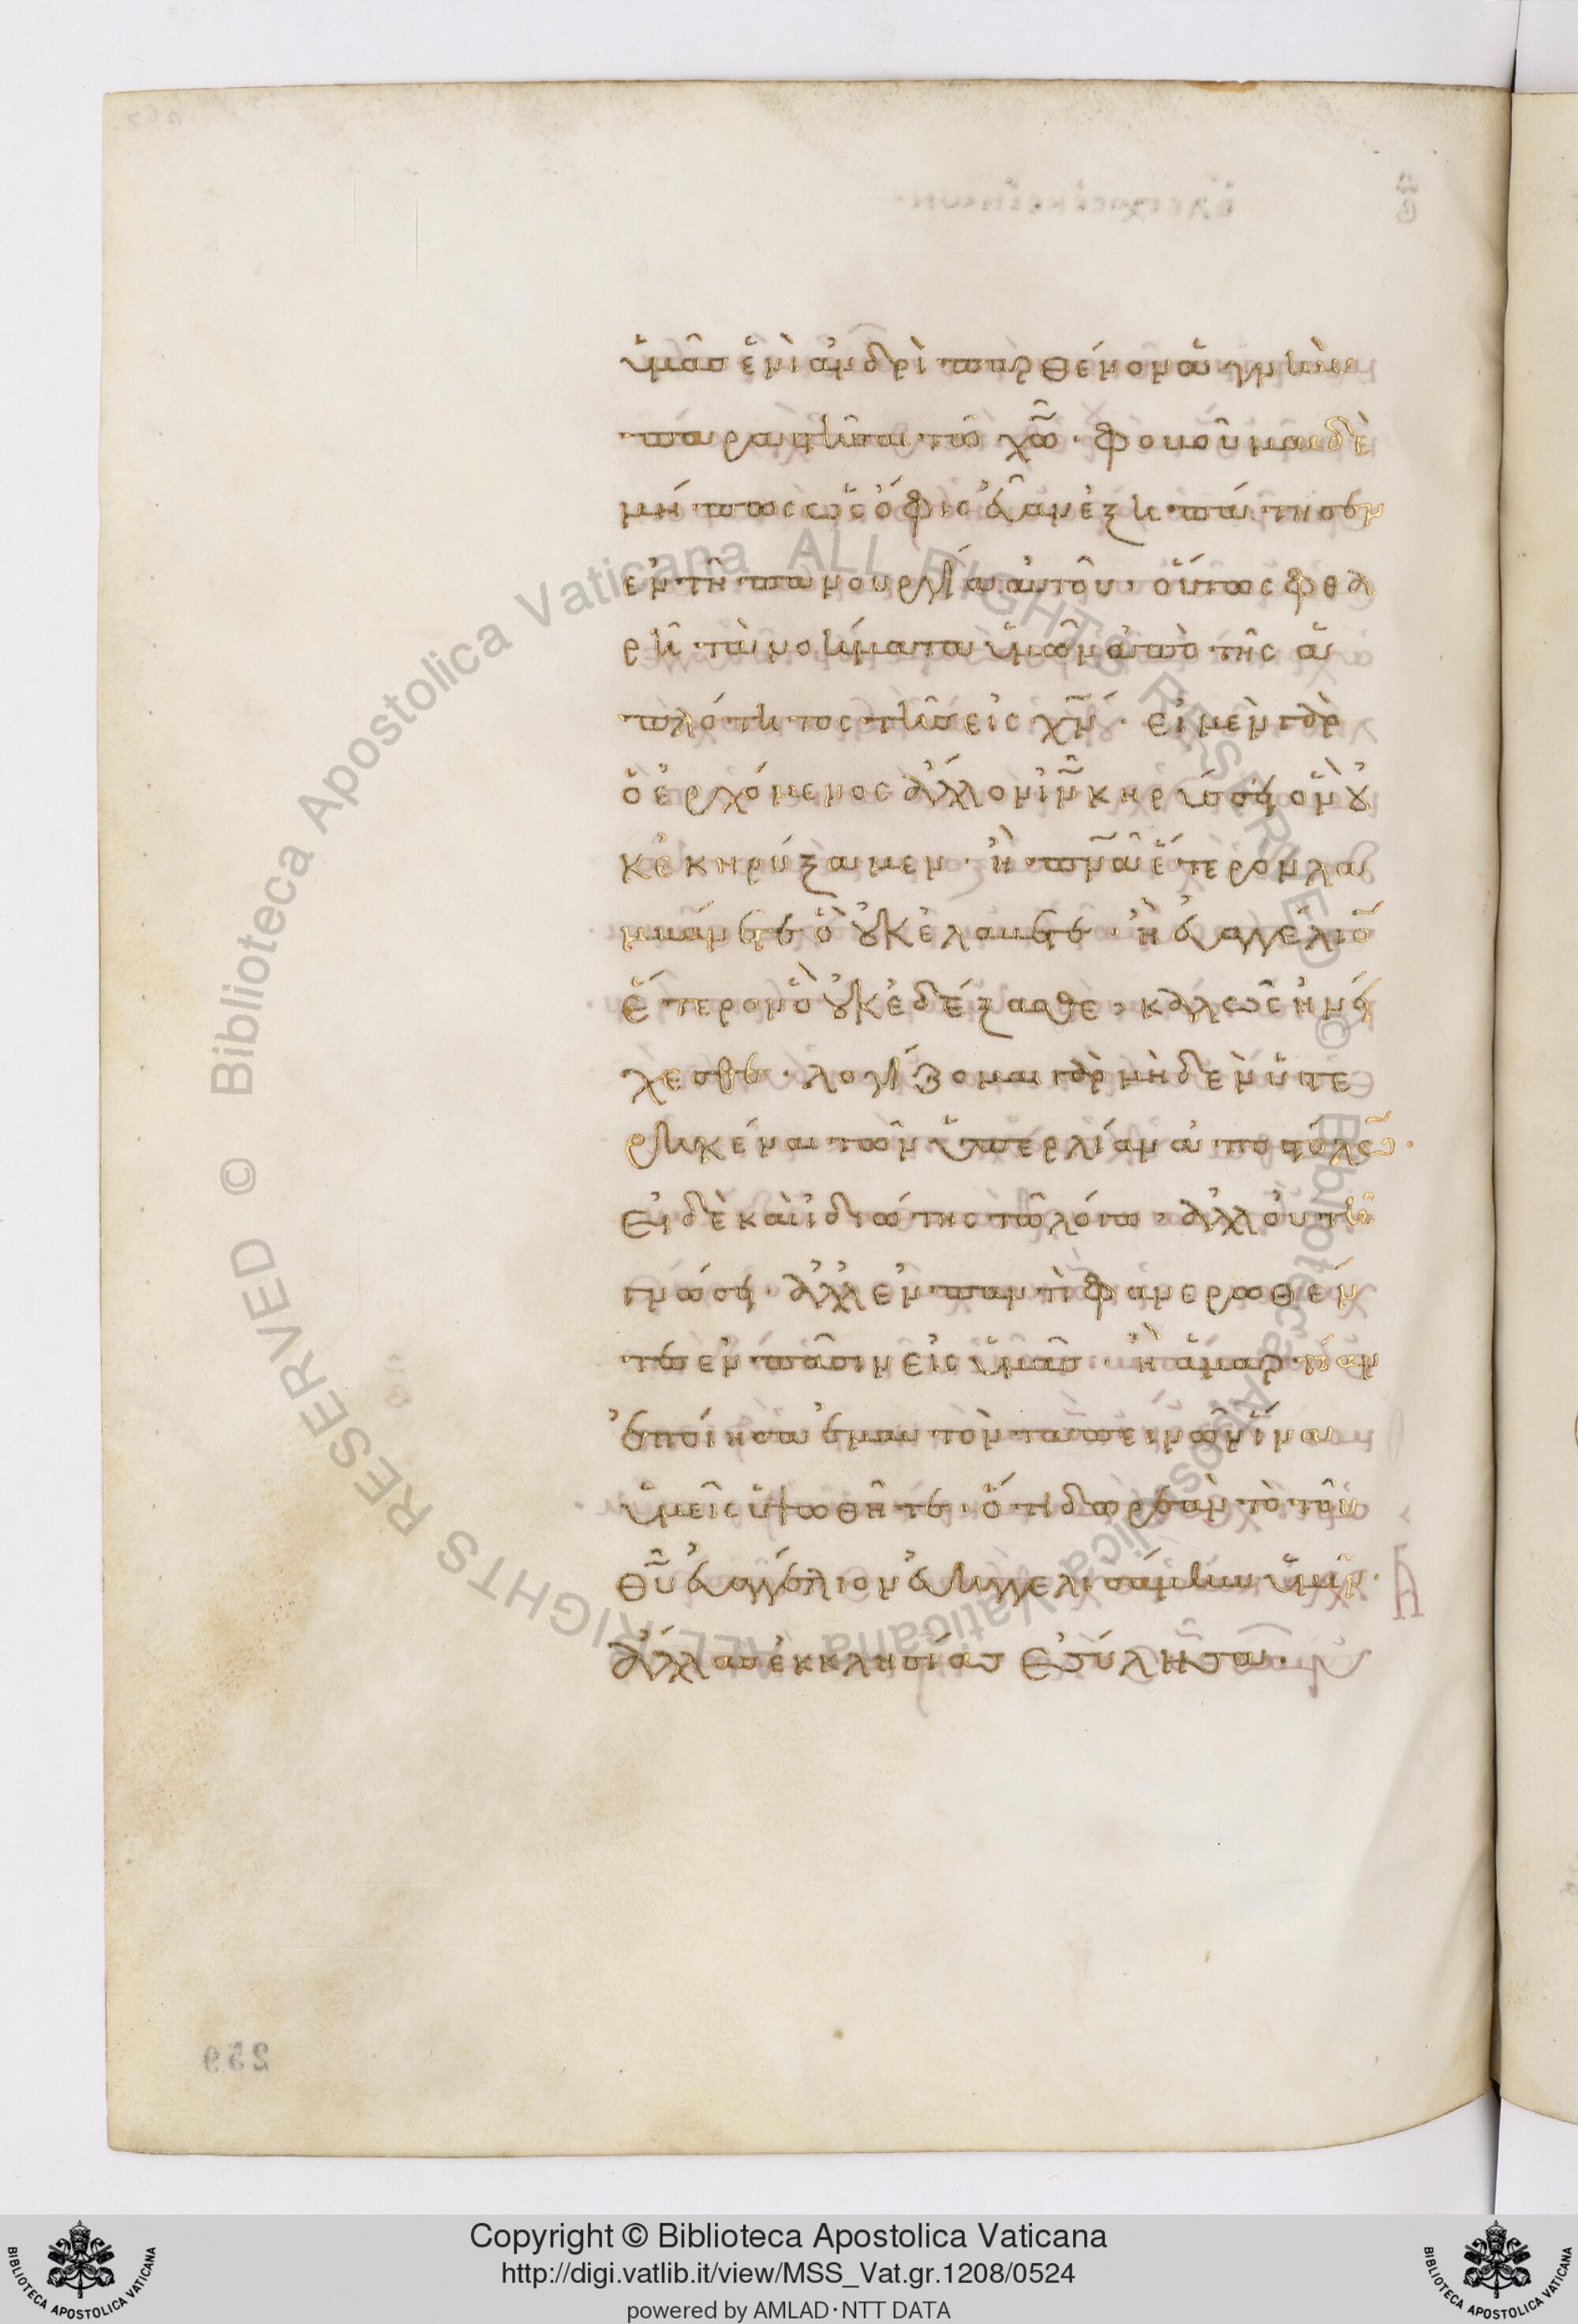 ὑμᾶσ ἑνὶ ἀνδρὶ παρθένον ἁγνὴν
παραστῆσαι τῶ χῶ· φοβοῦμαι δὲ
μή πως ὡς ὁ ὄφις εὔαν ἐξηπάτησεν
ἐν τῆ πανουργία αὐτοῦ, οὕτως φθα
ρῆ τὰ νοήματα ὑμῶν ἀπὸ τῆς ἁ
πλότητος τῆσ εἰς χν· εἰ μὲν γὰρ
ὁ ἐρχόμενος ἄλλον ιν κηρύσσει ὃν οὐ
κ ἐκηρύξαμεν· ἢ πνα ἕτερον λαμ
βάνετε ὃ οὐκ ἐλάβετε· ἢ εὐαγγέλιον
ἕτερον ὃ οὐκ ἐδέξασθε, καλῶς ἠνεί
χεσθε· λογίζομαι γὰρ μηδὲν ὑστε
ρηκέναι τῶν ὑπερλίαν ἀποστόλων·
Εἰ δὲ καὶ ἰδιώτης τῶ λόγω, ἀλλ οὐ τῆ
γνώσει· ἀλλ ἐν παντὶ φανερωθέν
τεσ ἐν πᾶσιν εἰς ὑμᾶσ· ἢ ἁμαρτίαν
ἐποίησα ἐμαυτὸν ταπεινῶν ἵνα
ὑμεῖς ὑψωθῆτε· ὅτι δωρεὰν τὸ τοῦ
θυ εὐαγγέλιον εὐηγγελισάμην ὑμῖν·
ἄλλασ ἐκκλησίασ ἐσύλησα·
259
© Biblioteca Apostolica Vaticana ALL RIGHTS RESERVED © Biblioteca Apostolica Vaticana ALL RIGHTS RESERVED
Copyright © Biblioteca Apostolica Vaticana
http://digi.vatlib.it/view/MSS_Vat.gr.1208/0524
powered by AMLAD·NTT DATA
BIBLIOTECA APOSTOLICA VATICANA
BIBLIOTECA APOSTOLICA VATICANA